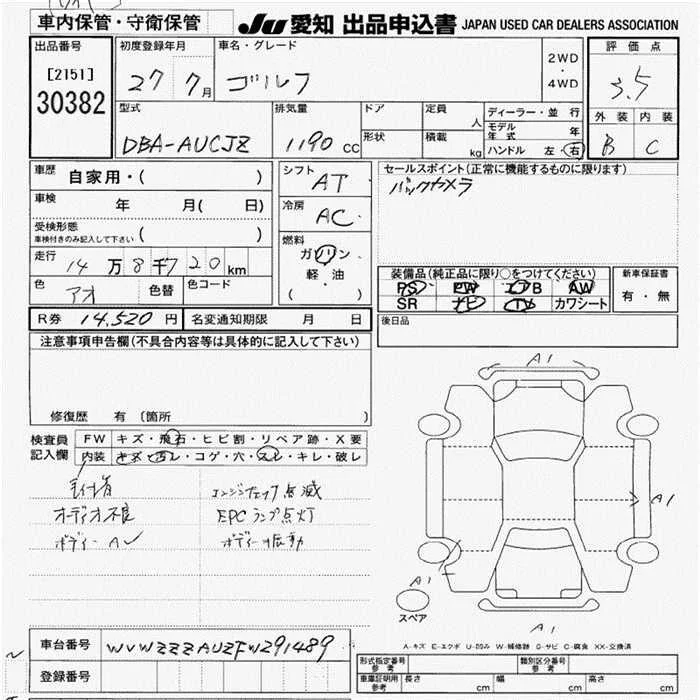 車内保管・守衛保管
JU 愛知 出品申込書 JAPAN USED CAR DEALERS ASSOCIATION
出品番号
[2151]
30382
初度登録年月
27 7月
車名・グレード
ゴルフ
2WD
・
4WD
評価点
3.5
外装 内装
B C
型式
DBA-AUCJZ
排気量
1190 cc
ドア
形状
定員
人
積載
kg
ディーラー・並 行
モデル年式 年
ハンドル 左・右
車歴
自家用・( )
車検
年 月( 日)
受検形態
車検付きのみ記入して下さい ( )
走行
14万8千720km
色
アオ
色替
色コード
シフト
AT
冷房
AC
燃料
ガソリン
軽・油
( )
セールスポイント(正常に機能するものに限ります)
バックカメラ
装備品(純正品に限り○をつけてください)
PS PW エアB AW
SR ナビ TV カワシート
新車保証書
有・無
R券 14,520円
名変通知期限 月 日
後日品
注意事項申告欄(不具合内容等は具体的に記入して下さい)
修復歴 有(箇所 )
検査員
記入欄
FW キズ・飛石・ヒビ割・リペア跡・X要
内装 キズ・汚レ・コゲ・穴・スレ・キレ・破レ
エンジンチェック点滅
オーディオ不良 EPCランプ点灯
ボディー振動
A1
A1
A1
A1
スペア
A-キズ E-エクボ U-凹み W-補修跡 S-サビ C-腐食 XX-交換済
車台番号
WVWZZZAUZFW291489
登録番号
型式指定番号
参考
類別区分番号
参考
車庫証明用
参考
長さ cm 幅 cm 高さ cm